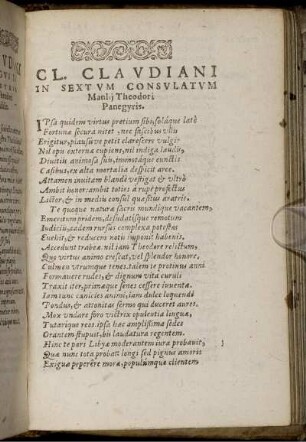 CL. CLAVDIANI
IN SEXTVM CONSVLATVM
Manlij Theodori
Panegyris.
IPsa quidem virtus pretium sibi, solaque latè
Fortunæ secura nitet, nec fascibus vllis
Erigitur, plausuve petit clarescere vulgi:
Nil opis externæ cupiens, nil indiga laudis,
Diuitiis animosa suis, immotaque cunctis
Casibus, ex alta mortalia despicit arce.
Attamen inuitam blandè vestigat & vltrò
Ambit honor: ambit toties à rure profectus
Lictor, & in mediis consul quæsitus aratris.
Te quoque naturæ sacris mundique vacantem,
Emeritum pridem, desudatisque remotum
Iudiciis, eadem rursus complexa potestas
Euehit, & reducem notis imponit habenis.
Accedunt trabeæ. nil iam Theodore relictum,
Quo virtus animo crescat, vel splendor honore.
Culmen vtrumque tenes. talem te protinus anni
Formauere rudes, & dignum vita curuli
Traxit iter. primæque senes cessere iuuentæ.
Iam tunc canities animi, iam dulce loquendi
Pondus, & attonitas sermo qui duceret aures.
Mox vndare foro victrix opulentia linguæ,
Tutarique reos. ipsa hæc amplissima sedes
Orantem stupuit, bis laudatura regentem.
Hinc te pars Libyæ moderantem iura probauit,
Quæ nunc tota probat. longi sed pignus amoris
Exiguæ peperère moræ, populumque clientem